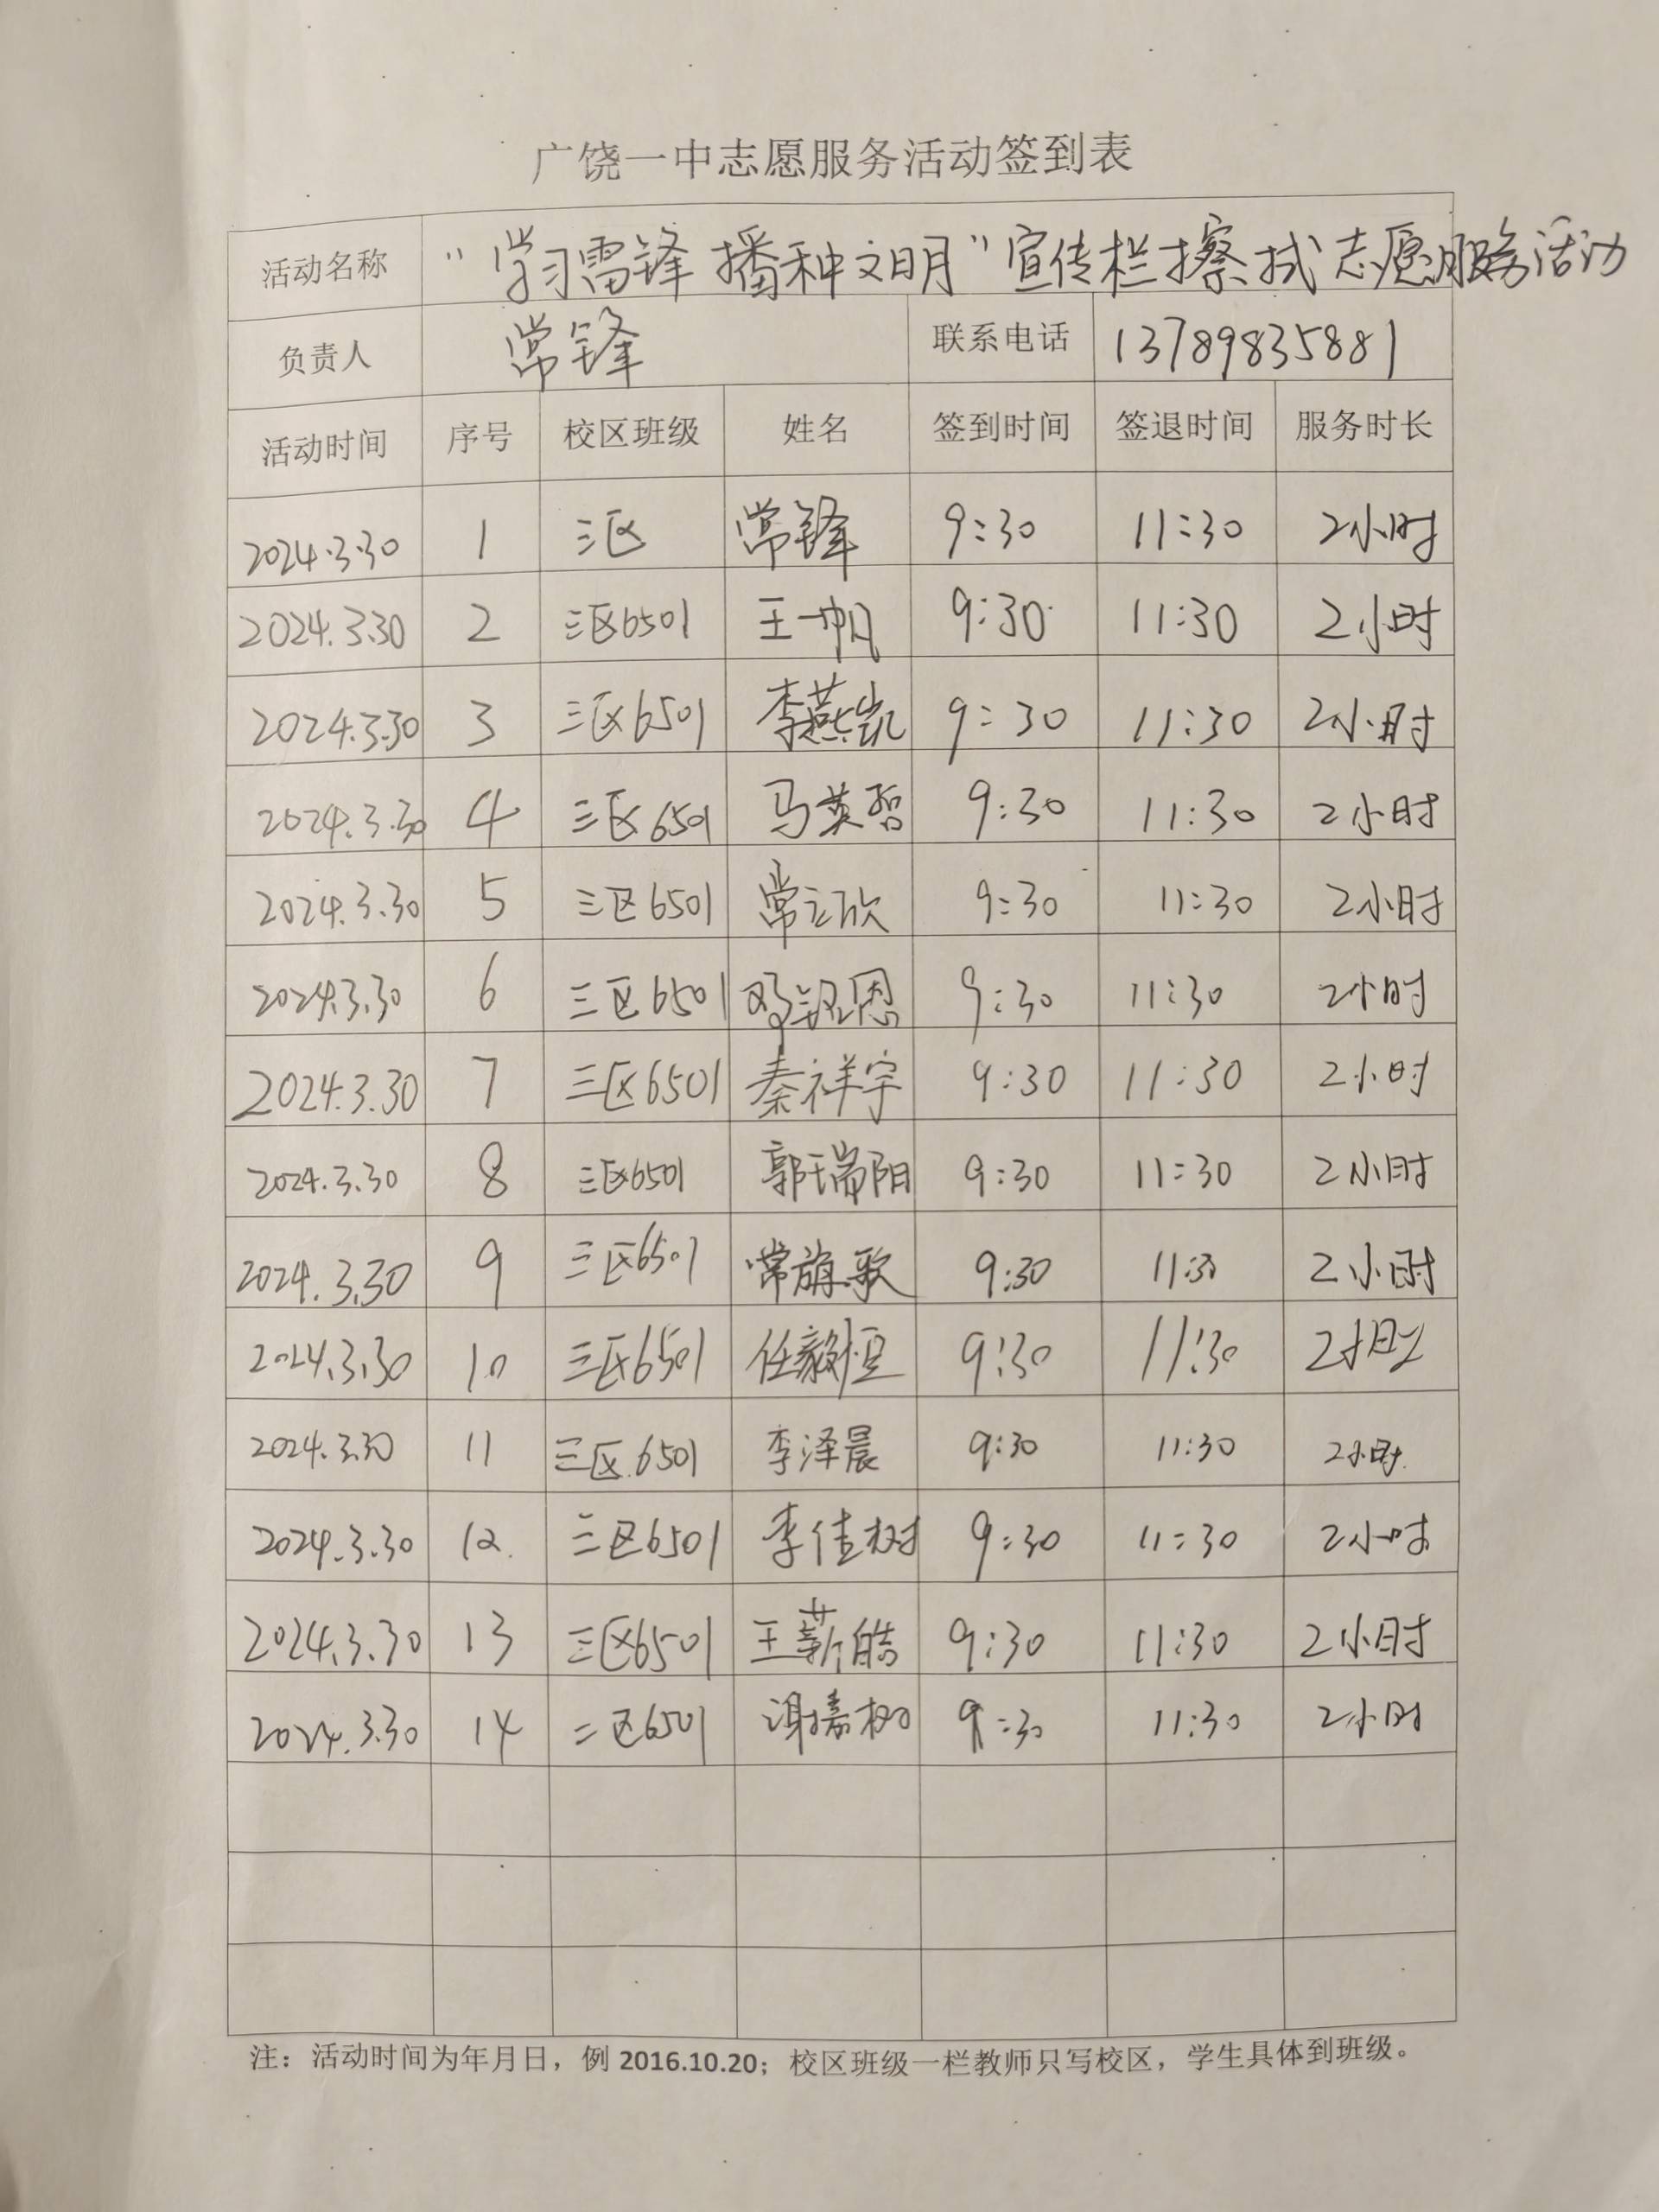 广饶一中志愿服务活动签到表
活动名称 "学习雷锋 播种文明"宣传栏擦拭志愿服务活动
负责人 常锋 联系电话 13789835881
活动时间 序号 校区班级 姓名 签到时间 签退时间 服务时长
2024.3.30 1 三区 常锋 9:30 11:30 2小时
2024.3.30 2 三区6501 王一帆 9:30 11:30 2小时
2024.3.30 3 三区6501 李燕凯 9:30 11:30 2小时
2024.3.30 4 三区6501 马英哲 9:30 11:30 2小时
2024.3.30 5 三区6501 常立欣 9:30 11:30 2小时
2024.3.30 6 三区6501 9:30 11:30 2小时
2024.3.30 7 三区6501 秦祥宇 9:30 11:30 2小时
2024.3.30 8 三区6501 郭瑞阳 9:30 11:30 2小时
2024.3.30 9 三区6501 常旗歌 9:30 11:30 2小时
2024.3.30 10 三区6501 任毅恒 9:30 11:30 2小时
2024.3.30 11 三区6501 李泽晨 9:30 11:30 2小时
2024.3.30 12. 三区6501 李佳树 9:30 11:30 2小时
2024.3.30 13 三区6501 王薪皓 9:30 11:30 2小时
2024.3.30 14 二区6501 谢嘉树 9:30 11:30 2小时
注：活动时间为年月日，例 2016.10.20；校区班级一栏教师只写校区，学生具体到班级。